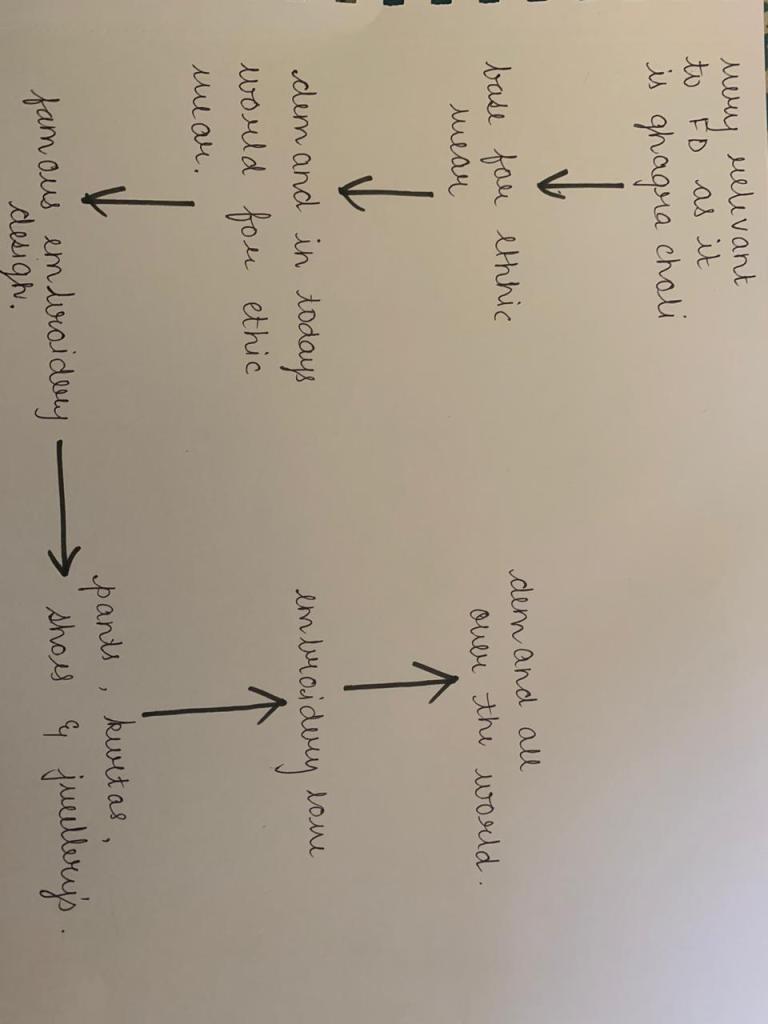 very relevant
to FD as it
is ghagra choli
base for ethnic
wear
demand in todays
world for ethic
wear.
famous embroidery
design.
pants, kurtas,
shoes & jwellery's.
embroidery love
demand all
over the world.